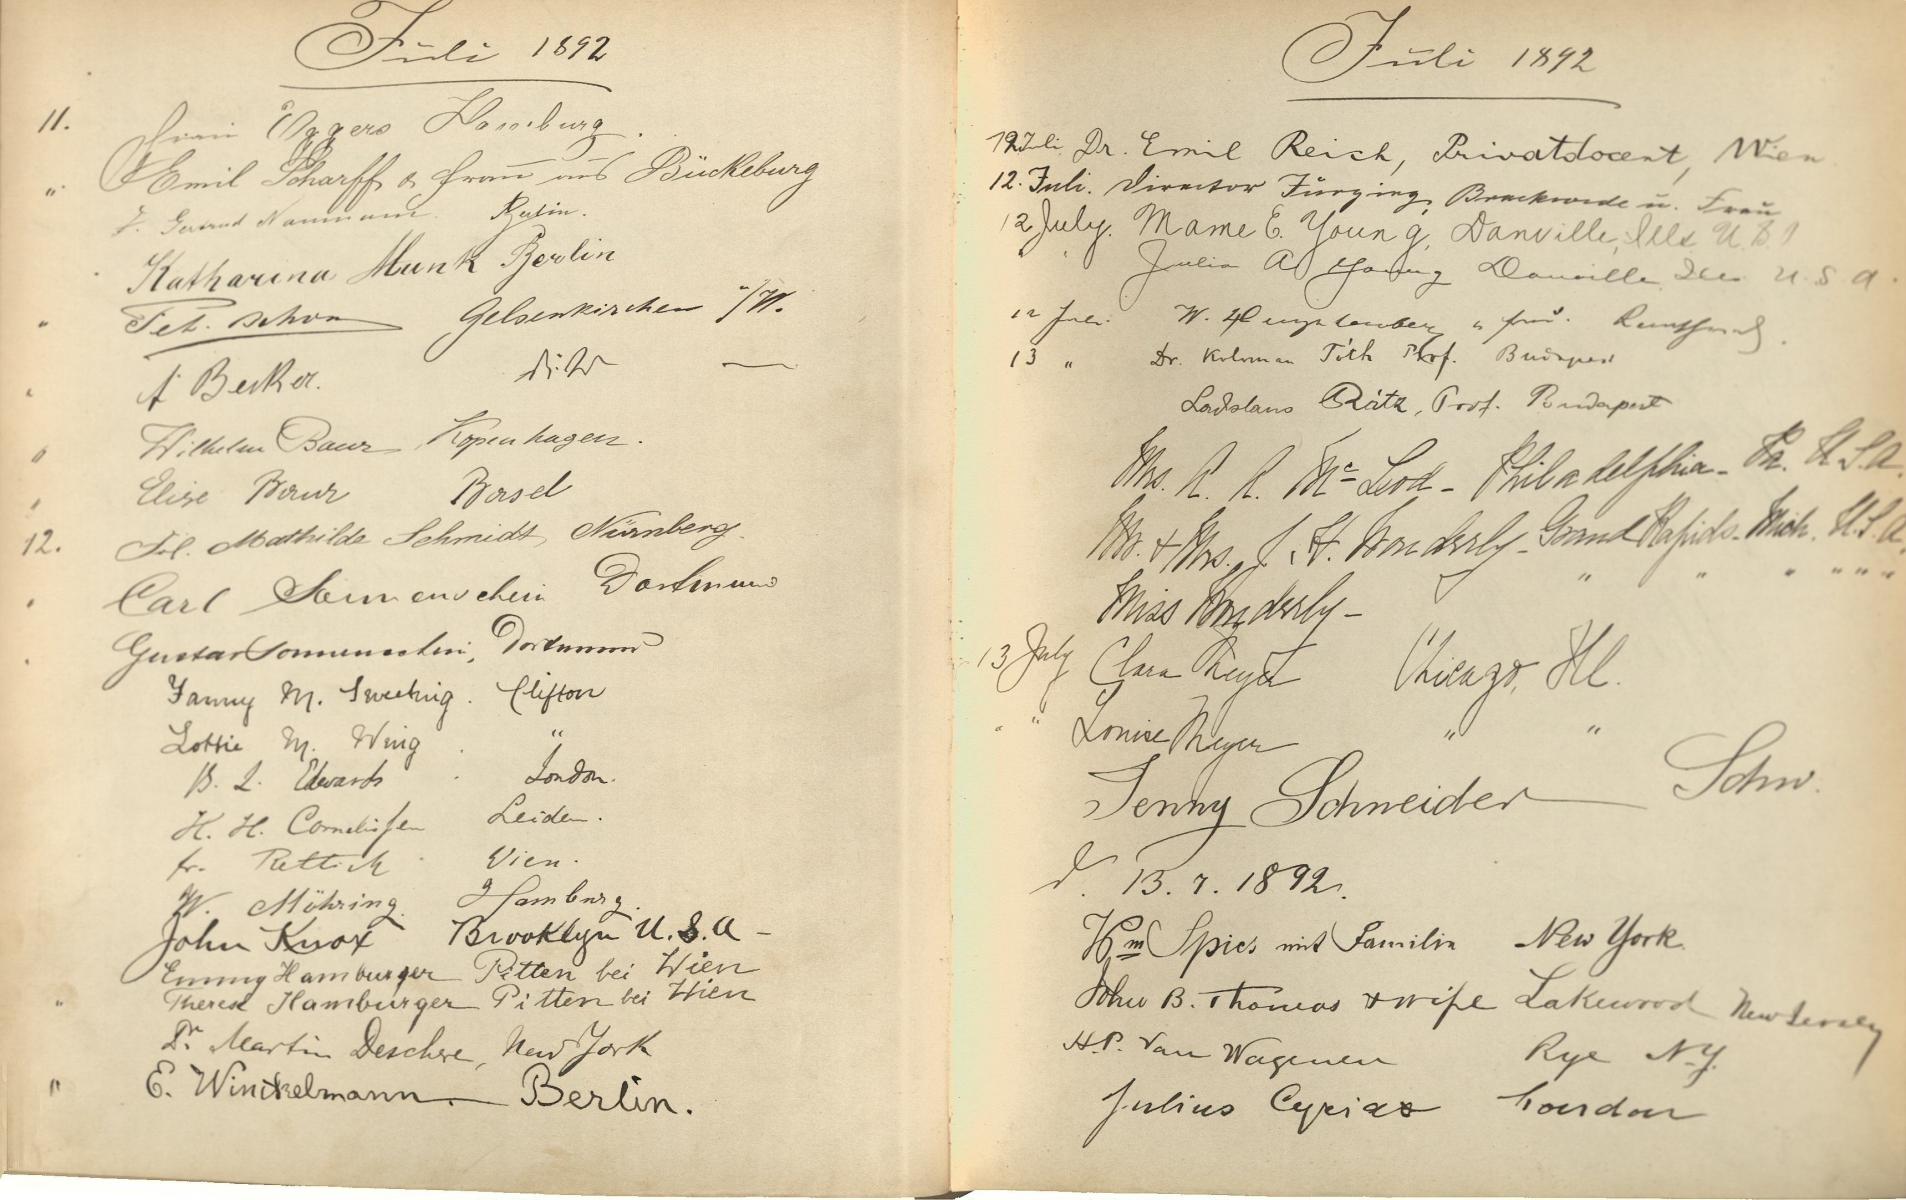 Juli 1892
11. Frau Eggers Hamburg.
" Emil Scharff & Frau aus Bückeburg
F. Gertrud Naumann. Berlin.
Katharina Munk Berlin
" Gelsenkirchen i/W.
" Becker. dito —
" Wilhelm Baur Kopenhagen.
" Elise Baur Basel
12. Frl. Mathilde Schmidt, Nürnberg.
" Carl Sonnenschein Dortmund
" Gustav Sonnenschein, Dortmund
Fanny M. Sweeting. Clifton
Lottie M. Wing . "
B. L. Edwards . London.
H. H. Leiden.
fr. Rettich . Wien.
W. Möhring. Hamburg.
John Knox Brooklyn U.S.A -
Emmy Hamburger Pitten bei Wien
" Therese Hamburger Pitten bei Wien
Dr Martin Deschere, New York
" E. Winckelmann. Berlin.
Juli 1892
12 Juli Dr. Emil Reich, Privatdocent, Wien
12. Juli. Director Brackwede u. Frau
12 July. Mame E. Young, Danville, Ills U.S.
" " Julia A. Young Danville Ills U.S.A.
12 Juli. W. u frau.
13 " Dr. Koloman Tóth Prof. Budapest
Ladislaus Rátz, Prof. Budapest
Mrs. R. R. Mc Leod - Philadelphia - Pa. U.S.A.
Mr. & Mrs. J. H. Wonderly - Grand Rapids - Mich. U.S.A.
Miss Wonderly - " " " " " "
13 July Clara Meyer Chicago, Ill.
" " Louise Meyer " "
Jenny Schneider Schw.
d. 13.7.1892.
Wm Spies mit Familie New York.
John B. Thomas & wife Lakewood New Jersey
H.P. Van Wagenen Rye N.Y.
Julius Cyriax London